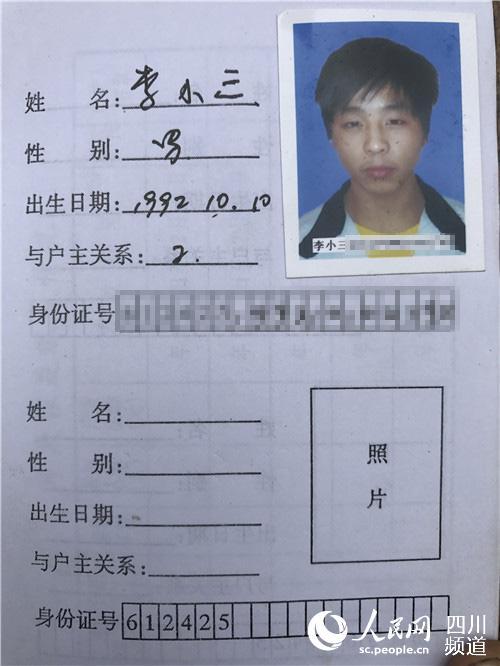 姓 名：李小三
李小三
性 别：男
出生日期：1992 10.10
与户主关系：2.
身份证号
姓 名：
性 别：
出生日期：
与户主关系：
照
片
身份证号 612425
人民网 四川
sc.people.cn 频道